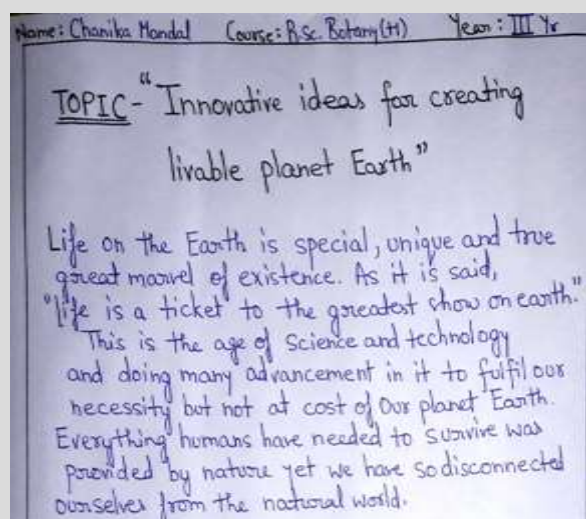 Name: Chanika Mondal Course: B.Sc. Botany (H) Year: III Yr
TOPIC- "Innovative ideas for creating
livable planet Earth"
Life on the Earth is special, unique and true
great marvel of existence. As it is said,
"life is a ticket to the greatest show on earth."
This is the age of Science and technology
and doing many advancement in it to fulfil our
necessity but not at cost of Our planet Earth.
Everything humans have needed to survive was
provided by nature yet we have so disconnected
ourselves from the natural world.